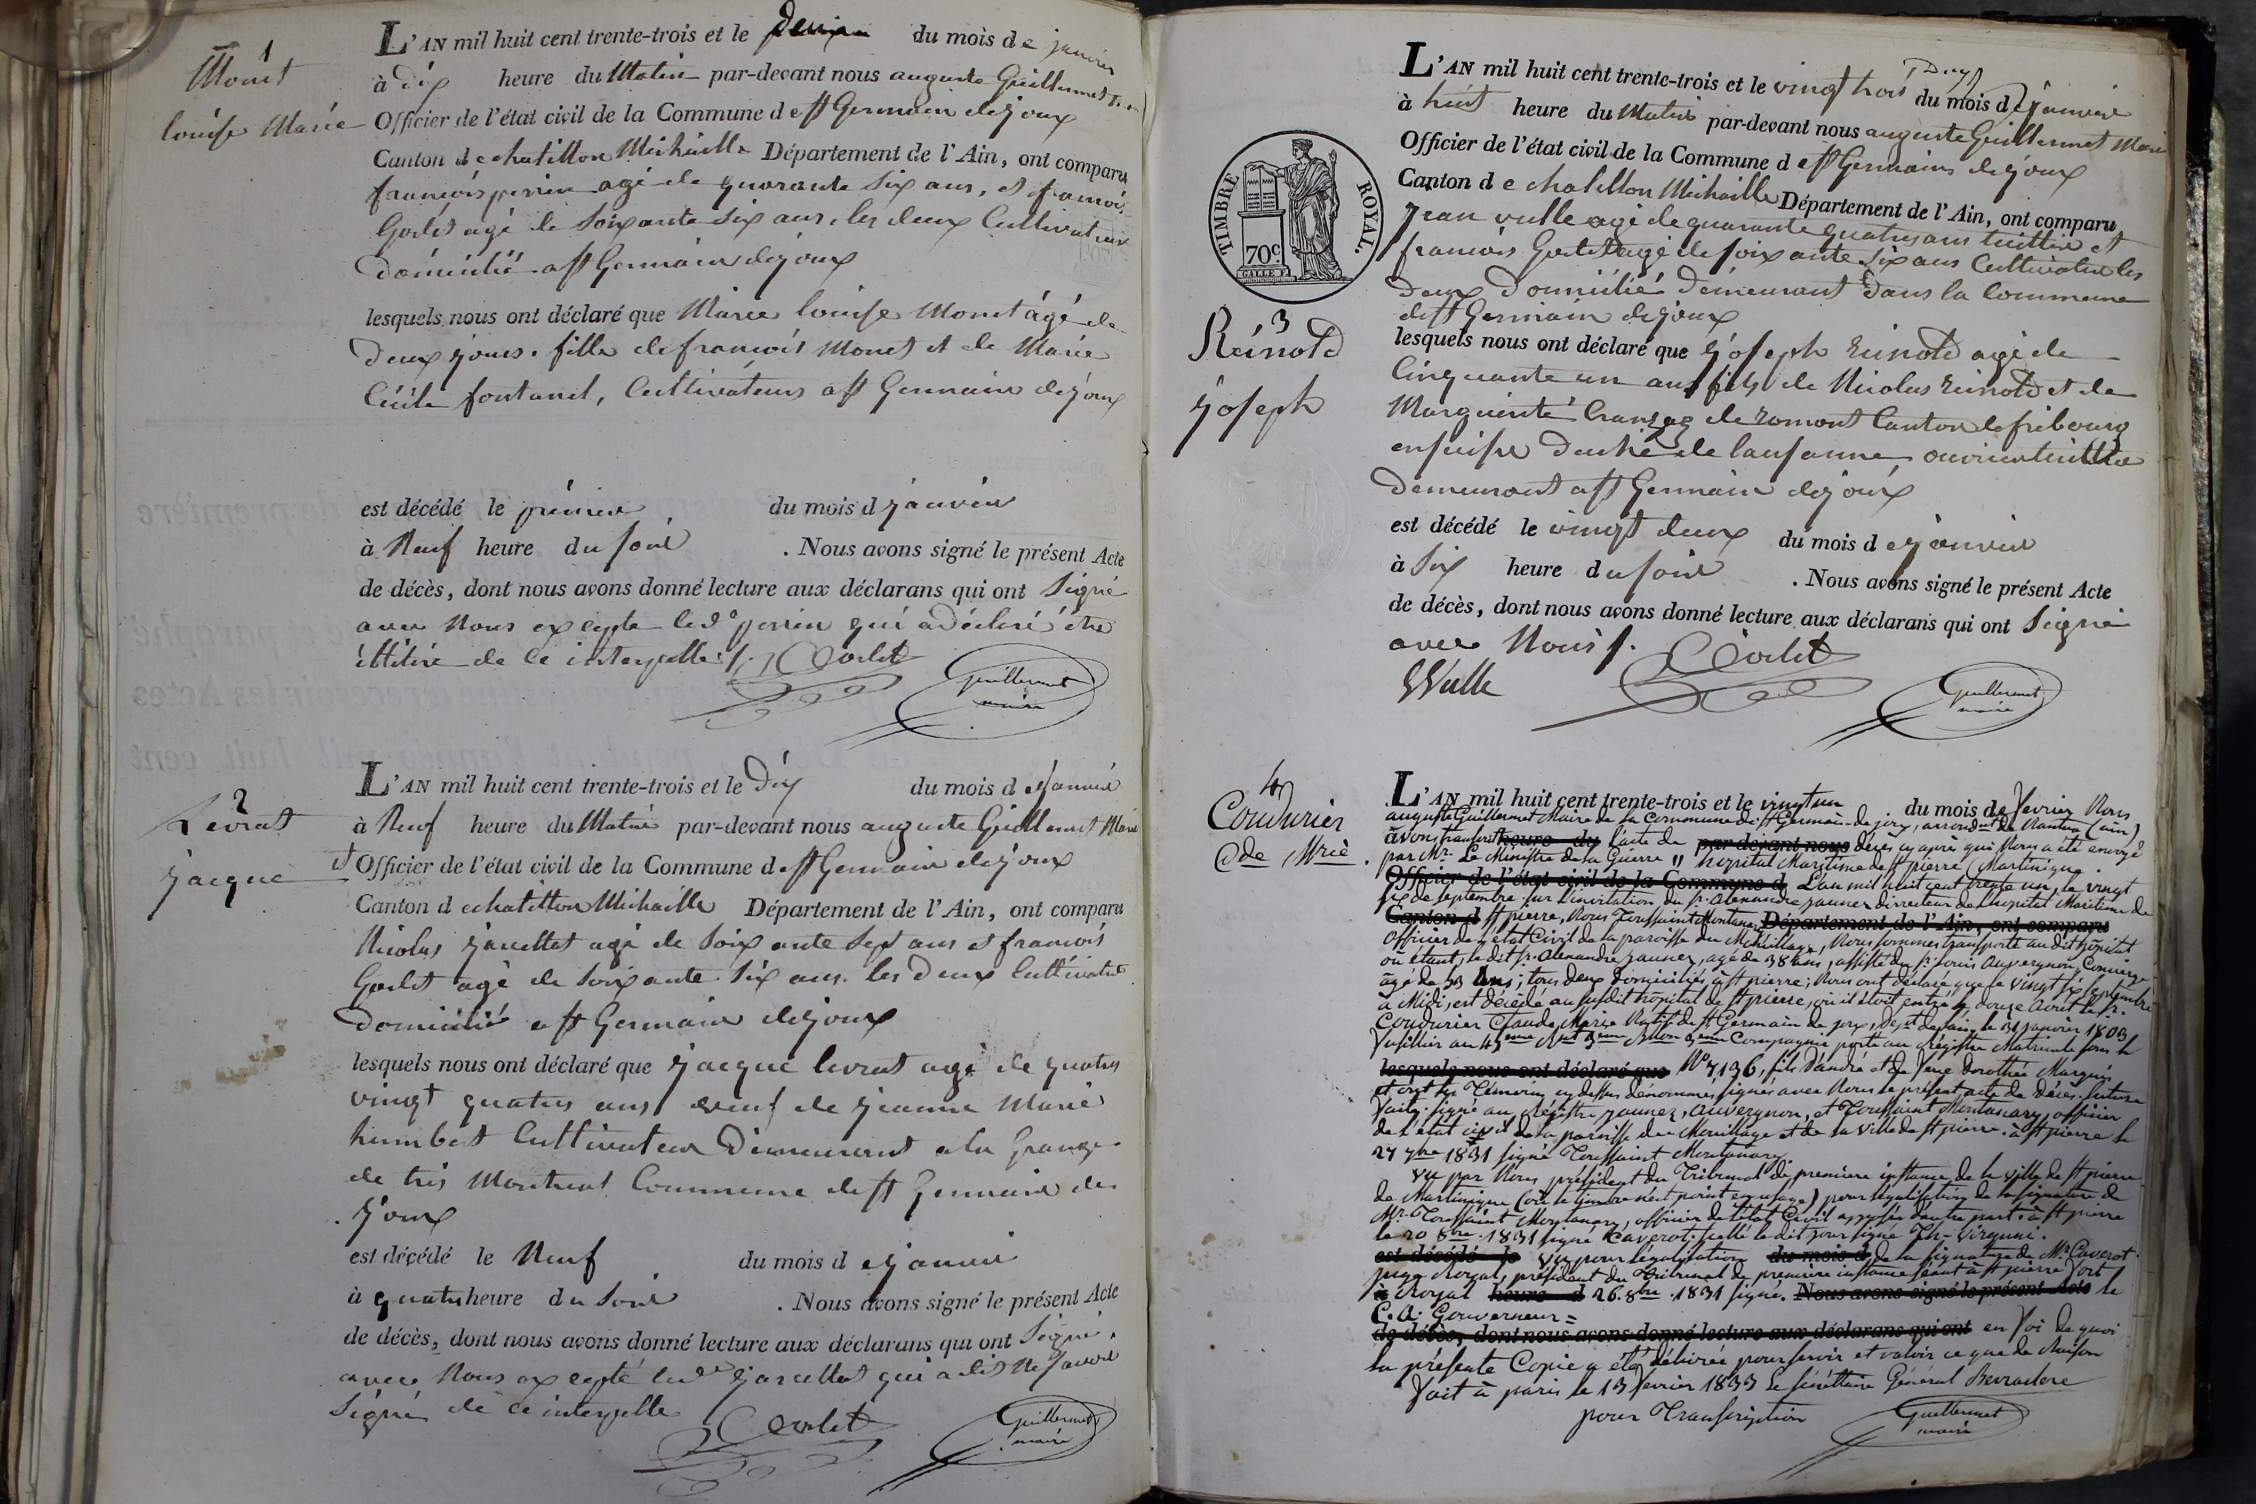 1
Monet
louise Marie
L'AN mil huit cent trente-trois et le deux du mois de janvier
à dix heure du Matin par-devant nous auguste Guillermet
Officier de l'état civil de la Commune de st Germain de joux
Canton de chatillon Michaille Département de l'Ain, ont comparu
françois perrin agé de quarante six ans, et françois
Godet agé de soixante six ans, les deux Cultivateurs
domicilié a st Germain de joux
lesquels nous ont déclaré que Marie louise Monet âgé de
deux jours. fille de françois Monet et de Marie
Cécile fontanet, Cultivateurs a st Germain de joux
est décédé le premier du mois d janvier
à Neuf heure du soir . Nous avons signé le présent Acte
de décès, dont nous avons donné lecture aux déclarans qui ont signé
avec Nous excepte led° perrin qui a déclaré être
illitiré de ce interpellé ./. Godet
Guillermet
maire
2
Levrat
jacque
L'AN mil huit cent trente-trois et le dix du mois de janvier
à Neuf heure du Matin par-devant nous auguste Guillermet Maire
et Officier de l'état civil de la Commune de st Germain de joux
Canton de chatillon Michaille Département de l'Ain, ont comparu
Nicolas jarcellat agé de soixante sept ans et francois
Godet agé de soixante six ans. les deux Cultivateur
domicilié a st Germain de joux
lesquels nous ont déclaré que jacque levrat agé de quatre
vingt quatre ans veuf de jeanne Marie
humbert Cultivateur demeurant a la Grange
de tres Montreal Commune de st Germain de
joux
est décédé le Neuf du mois de janvier
à quatre heure du soir . Nous avons signé le présent Acte
de décès, dont nous avons donné lecture aux déclarans qui ont signé.
avec Nous excepté led° jarcellat qui a dit Ne savoir
signer de ce interpellé Godet
Guillermet
maire
TIMBRE ROYAL.
70c.
3
Reinold
joseph
L'AN mil huit cent trente-trois et le vingt trois du mois de janvier
à huit heure du Matin par-devant nous auguste Guillermet Maire
Officier de l'état civil de la Commune de st Germain de joux
Canton de chatillon Michaille Département de l'Ain, ont comparu
Jean vulle agé de quarante quatre ans tuillier et
francois Godet agé de soixante six ans Cultivateur les
deux domicilié demeurant dans la Commune
de st Germain de joux
lesquels nous ont déclaré que joseph reinold agé de
Cinquante un ans fils de Nicolas reinold et de
Marguerite de romont Canton de fribourg
en suisse de lausanne, ouvrier tuillier
demeurant a st Germain de joux
est décédé le vingt deux du mois de janvier
à six heure du soir . Nous avons signé le présent Acte
de décès, dont nous avons donné lecture aux déclarans qui ont signé
avec Nous ./. Godet
Vulle
Guillermet
maire
4
Coudurier
Cde Mrie.
L'AN mil huit cent trente-trois et le vingt un du mois de fevrier Nous
auguste Guillermet Maire de la Commune de st Germain de joux, arrondmt de Nantua (ain)
avons transcrit heure du l'acte de par-devant nous décès cy après qui Nous a été envoyé
par Mr Le Ministre de la Guerre " hopital Maritime de st pierre Martinique.
Officier de l'état civil de la Commune d L'an mil huit cent trente un, le vingt
six de septembre sur l'invitation du sr. alexandre jaunez directeur de l'hopital Maritime de
Canton d st pierre, Nous Toussaint Montanary Département de l'Ain, ont comparu
officier de l'état Civil de la paroisse du Mouillage, Nous sommes transporté au dit hôpital
où étant, le dit sr. alexandre jaunez, agé de 38 ans, assisté du sr. louis auvergnon, Concierge
agé de 53 ans; tous deux domiciliés à st pierre; Nous ont déclaré que le vingt six septembre
à Midi, est décédé au susdit hôpital de st pierre, où il étoit entré le douze août le sr.
Coudurier Claude Marie Natif de st Germain de joux, dept de l'ain, le 31 janvier 1803
fusillier au 45eme Rgt 3eme Bllon 3eme Compagnie porté au Régistre Matricule sous le
lesquels nous ont déclaré que No 7196, fils d'andré et de feue dorothée Marquis
et ont les Témoins cy dessus dénommés signés avec Nous le présent acte de décès. lecture
faite. signé au Régistre jaunez, auvergnon, et Toussaint Montanary, officier
de l'état civil de la paroisse du Mouillage et de la ville de st pierre. à st pierre le
27 7bre 1831 signé Toussaint Montanary.
Vu par Nous président du Tribunal de premiere instance de la ville de st pierre
de Martinique (où le timbre n'est point en usage) pour légalisation de la signature de
Mr. Toussaint Montanary, officier de l'état Civil apposée d'autre part. à st pierre
le 20 8bre 1831 signé Caverot. scellé le dit jour signé
est décédé le Vu pour légalisation du mois d de la signature de Mr. Caverot
juge Royal, président du Tribunal de premiere instance séant à st pierre fort
à Royal heure d 26. 8bre. 1831 signé. Nous avons signé le présent Acte le
C. A. Gouverneur =
de décès, dont nous avons donné lecture aux déclarans qui ont en foi de quoi
la présente Copie a été délivrée pour servir et valoir ce que de Raison
fait à paris le 13 fevrier 1833 le secrétaire Général
pour Transcription
Guillermet
maire